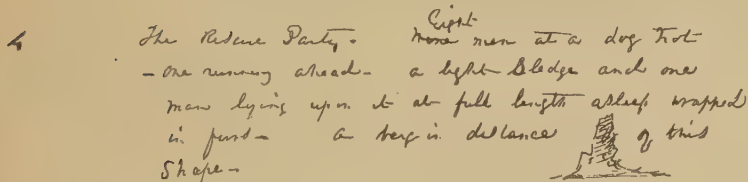 4 The Rescue Party - Eight
Nine men at a dog trot
- one running ahead - a light Sledge and one
man lying upon it at full length asleep wrapped
in furs - a berg in distance of this
Shape -